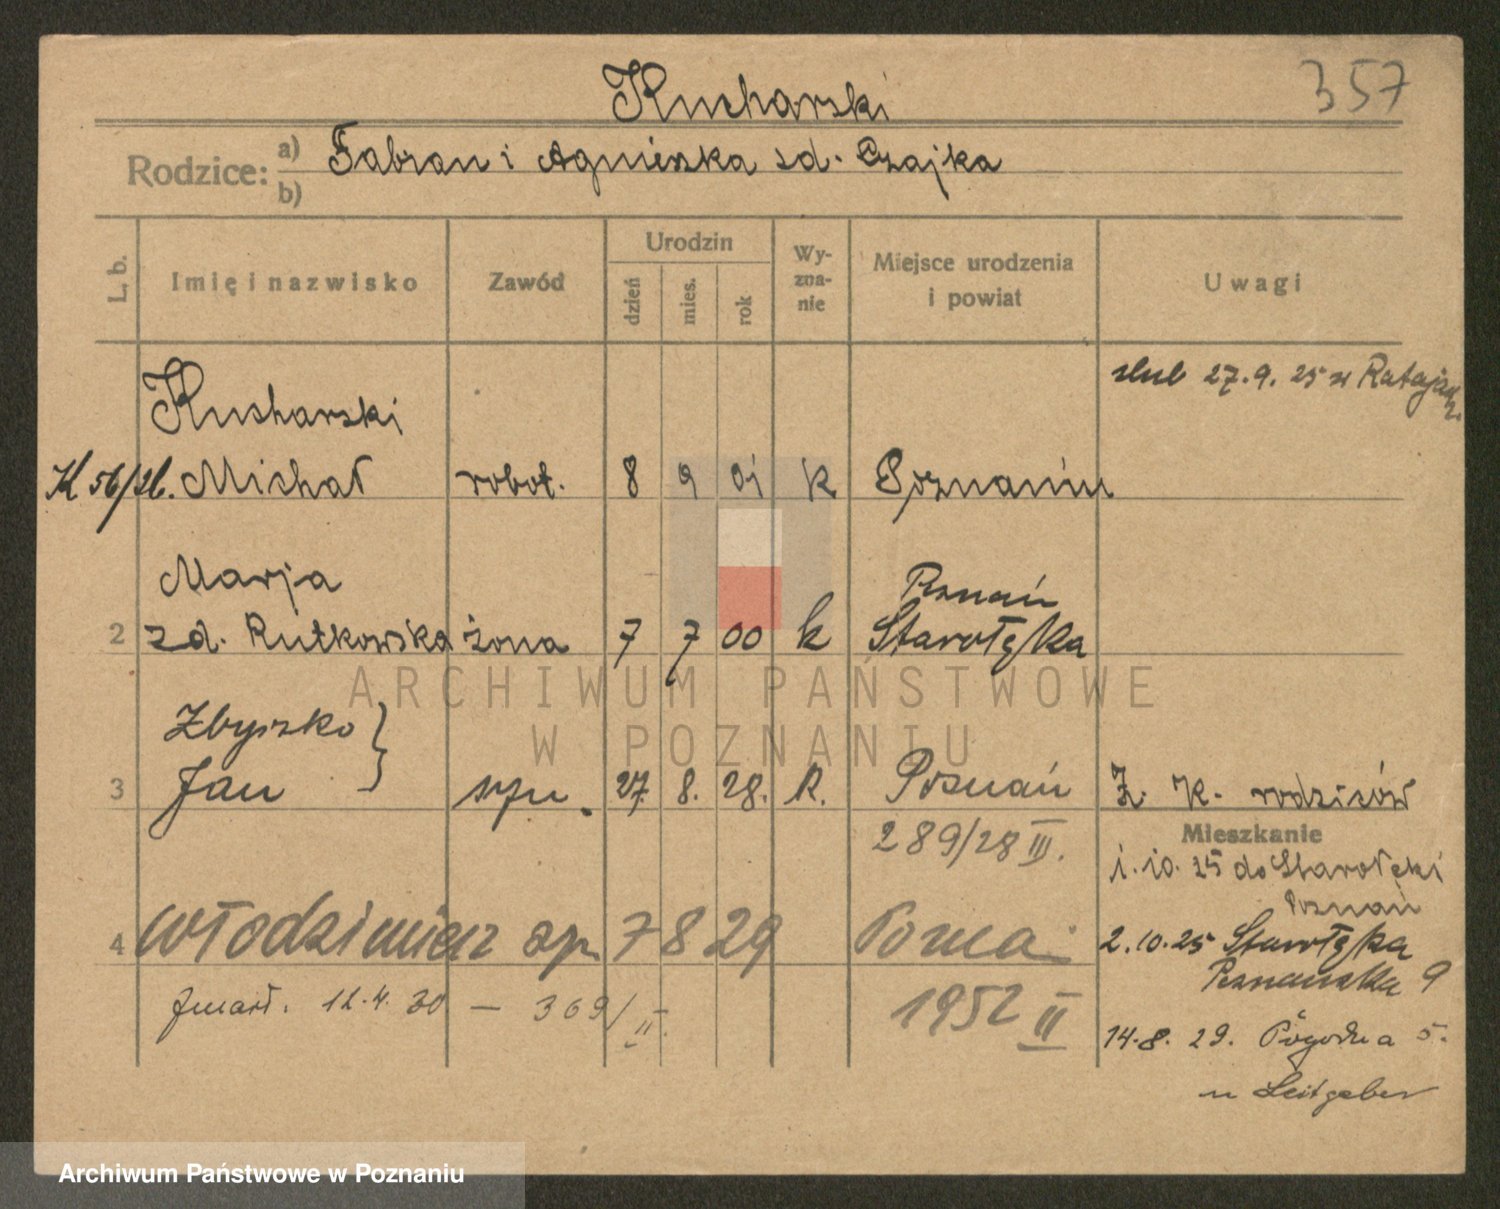 357
Kucharski
Rodzice: a) Fabian i Agnieszka zd. Czajka
b)
L. b.
Imię i nazwisko
Zawód
Urodzin
dzień
mies.
rok
Wy-
zna-
nie
Miejsce urodzenia
i powiat
Uwagi
ślub 27.9.25 w Ratajach
Kucharski
K 56/26. Michał robot. 8 9 01 k Poznaniu
Marja Poznań
2 zd. Rutkowska żona 7 7 00 k Starołęka
Zbyszko
3 Jan syn. 27. 8. 28. k. Poznań Z. K. rodziców
289/28 III.
Mieszkanie
1.10.25 do Starołęki
Poznań
4 Włodzimierz syn 7 8 29 Poznań
2.10.25 Starołęka
Poznańska 9
zmarł. 12.4.30 — 369/II.
1952 II
14.8.29. Pogodna 5.
u Leitgeber
ARCHIWUM PAŃSTWOWE
W POZNANIU
Archiwum Państwowe w Poznaniu